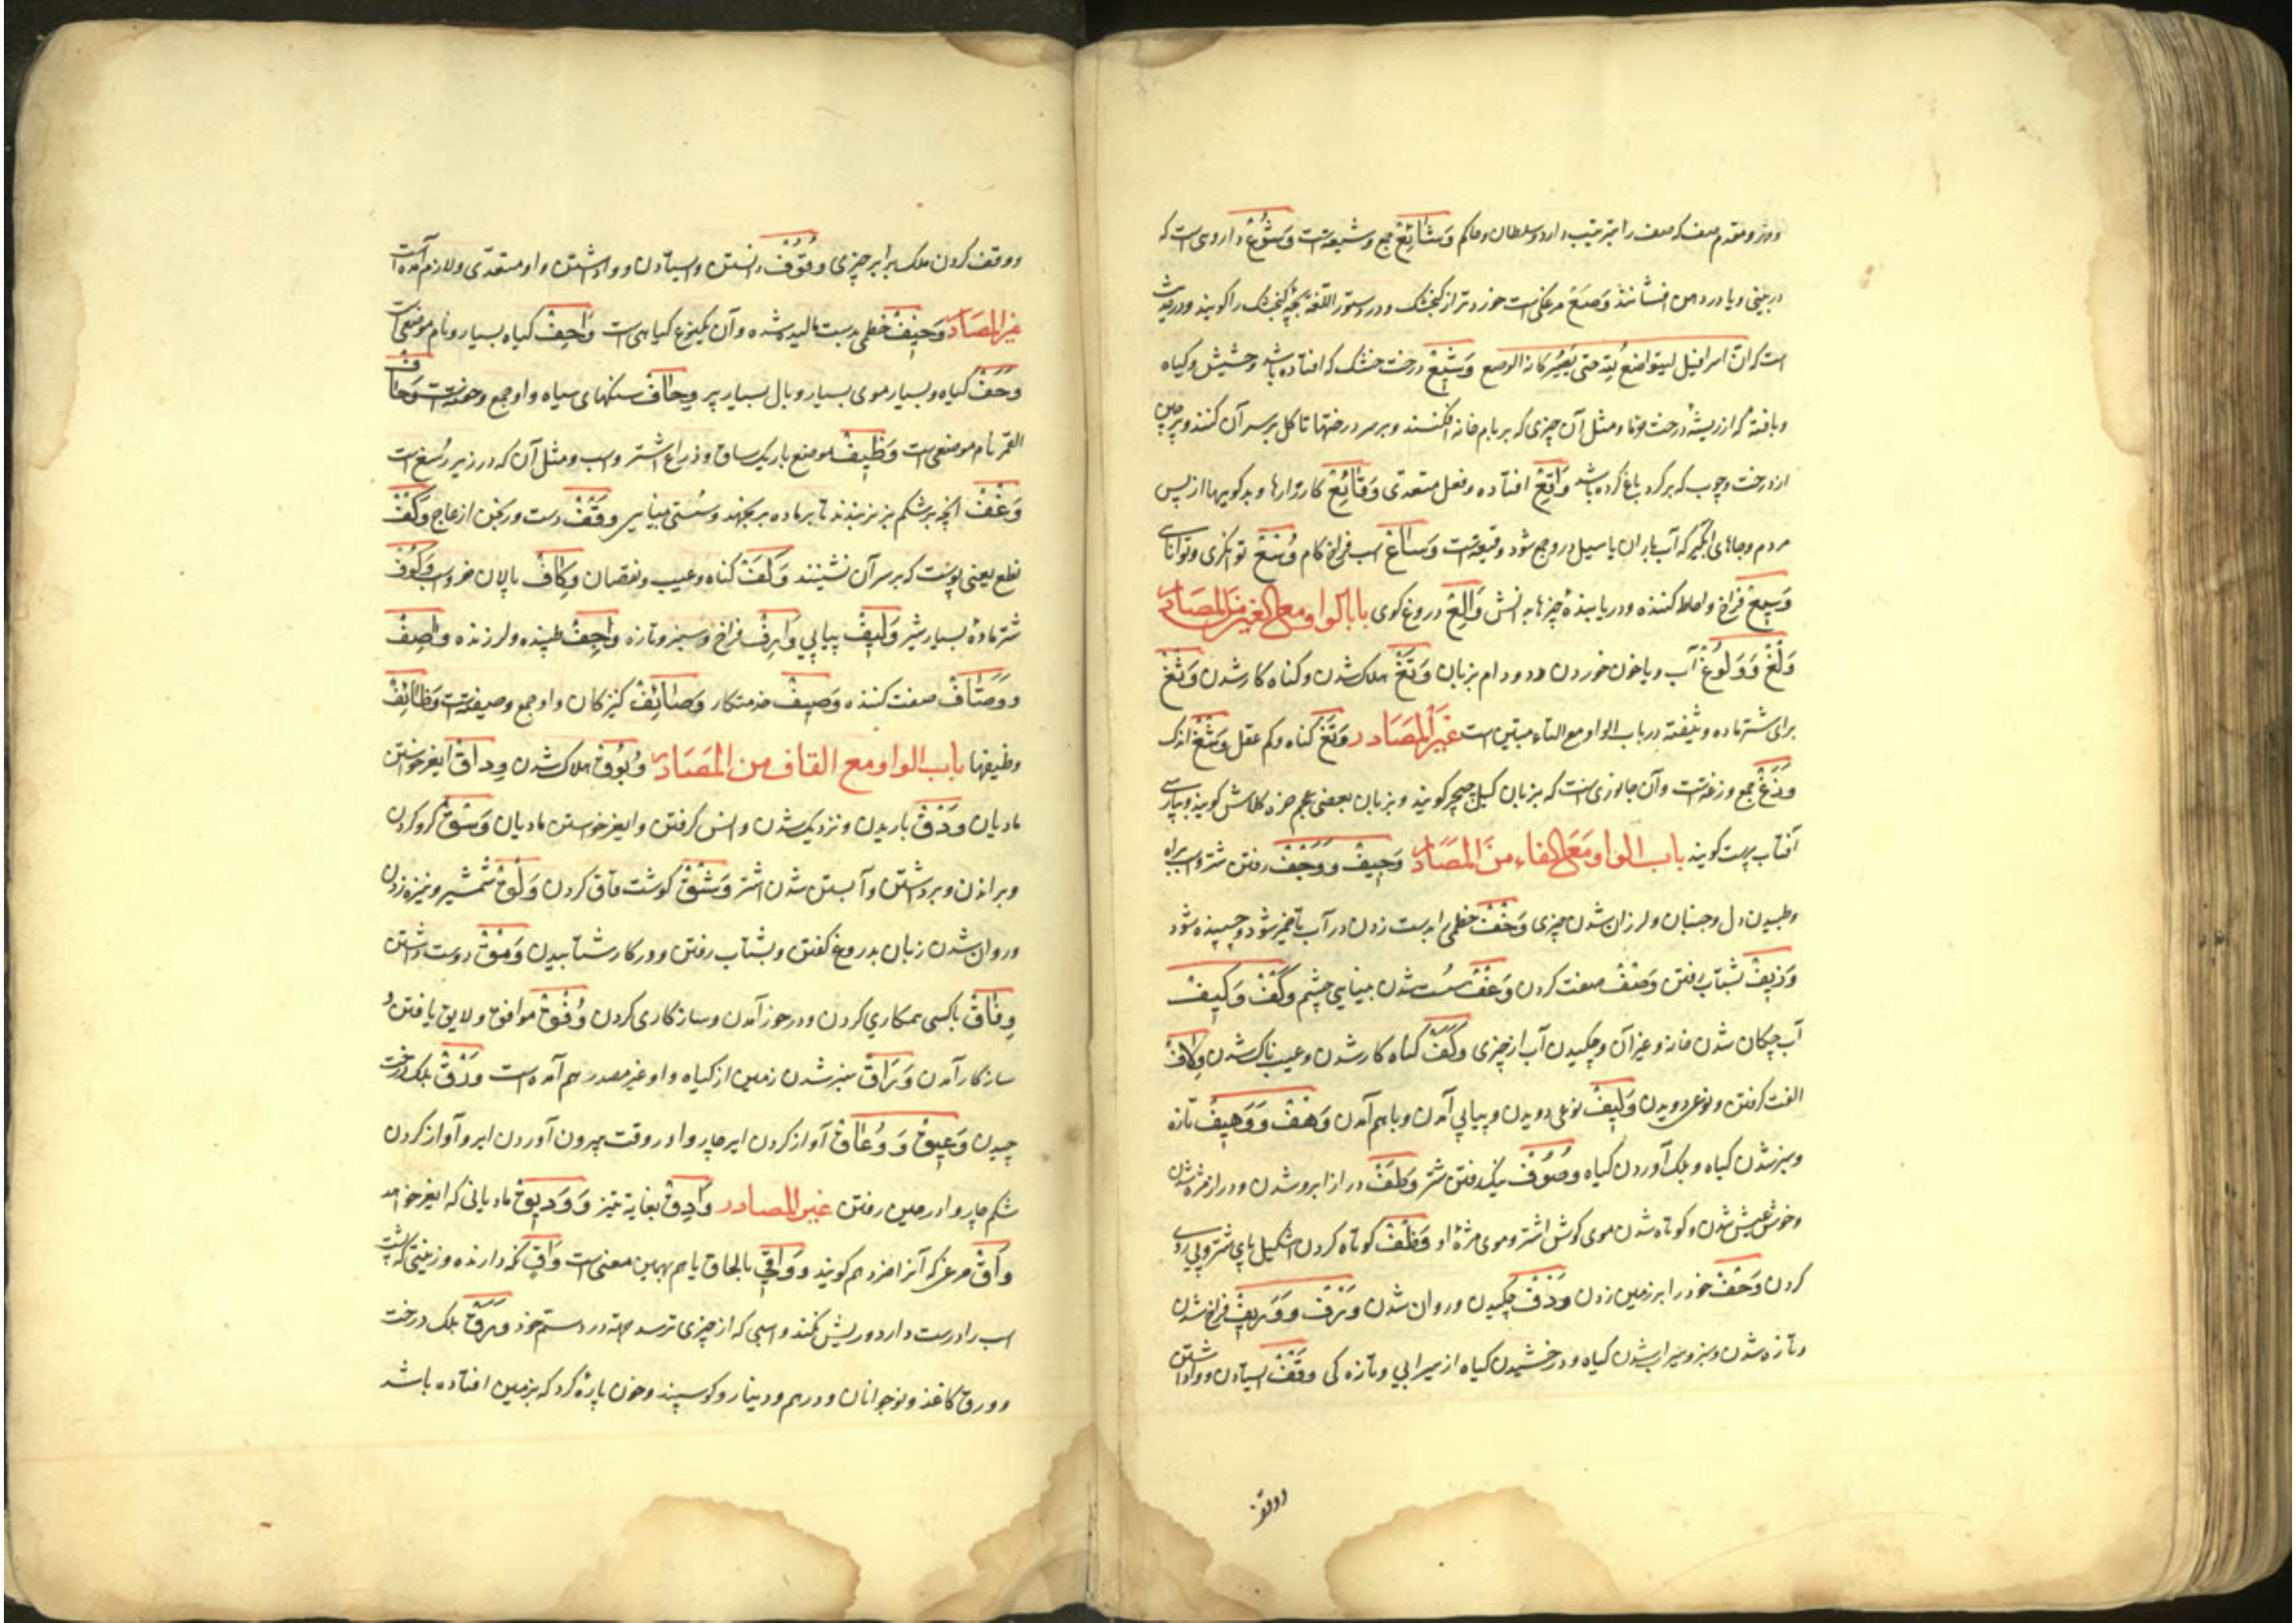 ووزر و مقدم صف که صف را بترتیب دارد و سلطان و حاکم وَشَائِعْ جمع وشیعه‌ست وَشُوْغْ داروی است که
در بینی و یا در دهن افشانند وَصَعْ مرغکی‌ست خوردتر از کنجشک و در دستور اللغة بچه کنجشک را کویند و در حدیث
است که ان اسرافیل لیتواضع لله حتی یصیر کانه الوصع وَشِیْعْ درخت خشک که افتاده باشد و حشیش و کیاه
و بافته که از ریشهٔ درخت و مثل آن چیزی که بر بام خانه افکنند و بر سر درختها تا کل بر سر آن کنند و پرچین
از درخت و چوب که بر کرد باغ کرده باشد وَاقِعْ افتاده و فعل متعدی وَقَائِعْ کارزارها و بدکوییها از پس
مردم و جاهای آبکیر که آب باران یا سیل درو جمع شود وقیعه‌ست وَسَاعْ اسب فراخ کام وُسْعْ توانکری و توانایی
وَسِیعْ فراخ و احاطه کننده و دریابنده چیزها بدانش وَالِعْ دروغ کوی باب الواو مع الغین من المصادر
وَلْغْ وَ وُلُوغْ آب و یا خون خوردن دد و دام بزبان وَتَغْ هلاک شدن و کناه کار شدن وَثْغْ
برای شتر ماده وثیغه در باب الواو مع التاء مبین است غیر المصادر وَتَغْ کناه و کم عقل وَشْغْ اندک
وَزَغْ جمع وزغه‌ست و آن جانوری است که بزبان کیل چچر کویند و بزبان بعضی عجم خره کلاش کویند و بپارسی
آفتاب پرست کویند باب الواو مع الفاء من المصادر وَجِیفْ وَ وَجْفْ رفتن شتر و اسب براه
و طپیدن دل و جنبان و لرزان شدن چیزی وَخْفْ خطمی را بدست زدن در آب تا خمیر شود و چسپنده شود
وَذِیفْ بشتاب رفتن وَصْفْ صفت کردن وَغْفْ سست شدن بینایی چشم وَکْفْ وَکِیفْ
آب چکان شدن خانه و غیر آن و چکیدن آب از چیزی وَکَفْ کناه کار شدن و عیب ناک شدن وِلَافْ
الفت کرفتن و نوعی دویدن وَلِیفْ نوعی دویدن و پیاپی آمدن و باهم آمدن وَهْفْ وَ وَهِیفْ تازه
و سبز شدن کیاه و برک آوردن کیاه وُصُوفْ نیک رفتن شتر وَطَفْ دراز ابرو شدن و دراز مژه شدن
و خوش عیش شدن و کوتاه شدن موی کوش اشتر و موی مژهٔ او وَظْفْ کوتاه کردن اشکیل پای شتر و پی روی
کردن وَحْفْ خود را بر زمین زدن وَذْفْ چکیدن و روان شدن وَرْفْ وَ وَرِیفْ فراخ شدن
و تازه شدن و سبز و سیراب شدن کیاه و درخشیدن کیاه از سیرابی و تازه کی وَقْفْ ایستادن و واداشتن
ووقف
ووقف کردن ملک برابر چیزی وُقُوْفْ دانستن و ایستادن و واداشتن و او متعدی و لازم آمده است
غیر المصادر وَخِیفْ خطمی بدست مالیده شده و آن یکنوع کیاهی است وَاحِفْ کیاه بسیار و نام موضعی است
وَحَفْ کیاه و بسیار موی بسیار و بال بسیار پر وِحَافْ سنکهای سیاه و او جمع وحفه‌ست وَحَافْ
القمر نام موضعی است وَظِیفْ موضع باریک ساق و ذراع اشتر و اسب و مثل آن که در زیر رسغ است
وَغْفْ آنچه بر شکم بز نر بندند تا بر ماده بر نجهد و سستی بینایی وَقْفْ دست ورنجن از عاج وَکْفْ
نطع یعنی پوست که بر سر آن نشینند وَکَفْ کناه و عیب و نقصان وِکَافْ پالان خر و اسب وَکُوفْ
شتر مادهٔ بسیار شیر وَلِیفْ پیاپی وَارِفْ فراخ و سبز و تازه وَاجِفْ طپنده و لرزنده وَاصِفْ
و وَصَّافْ صفت کننده وَصِیفْ خدمتکار وَصَائِفْ کنیزکان و او جمع وصیفه‌ست وَظَائِفْ
وظیفها باب الواو مع القاف من المصادر وُبُوقْ هلاک شدن وِدَاقْ ایغر خواستن
مادیان وَدْقْ باریدن و نزدیک شدن و انس کرفتن و ایغر خواستن مادیان وَسْقْ کرد کردن
و براندن و برداشتن و آبستن شدن اشتر وَشْقْ کوشت قاق کردن وَلْقْ شمشیر و نیزه زدن
و روان شدن زبان بدروغ کفتن و بشتاب رفتن و در کار شتابیدن وَمْقْ دوست داشتن
وِفَاقْ با کسی همکاری کردن و در خور آمدن و سازکاری کردن وُفْقْ موافق و لایق یافتن و
سازکار آمدن وَرَاقْ سبز شدن زمین از کیاه و او غیر مصدر هم آمده است وَرْقْ برک درخت
چیدن وَعِیقْ وَ وُعَاقْ آواز کردن ایر چاروا در وقت بیرون آوردن ایر و آواز کردن
شکم چاروا در حین رفتن غیر المصادر وَادِقْ بغایة تیز وَ وَدِیقْ مادیانی که ایغر خواهد
وَاقْ مرغی که آنرا صرد هم کویند و وَاقِی بالحاق یا هم بهمین معنی است وَاقٍ نکه دارنده و زینتی که پشت
اسب را درست دارد و ریش نکند و اسبی که از چیزی ترسد وَرَقْ برک درخت
و ورق کاغذ و نوجوانان و درهم و دینار و کوسپند و خون پارهٔ کرد که بزمین افتاده باشد